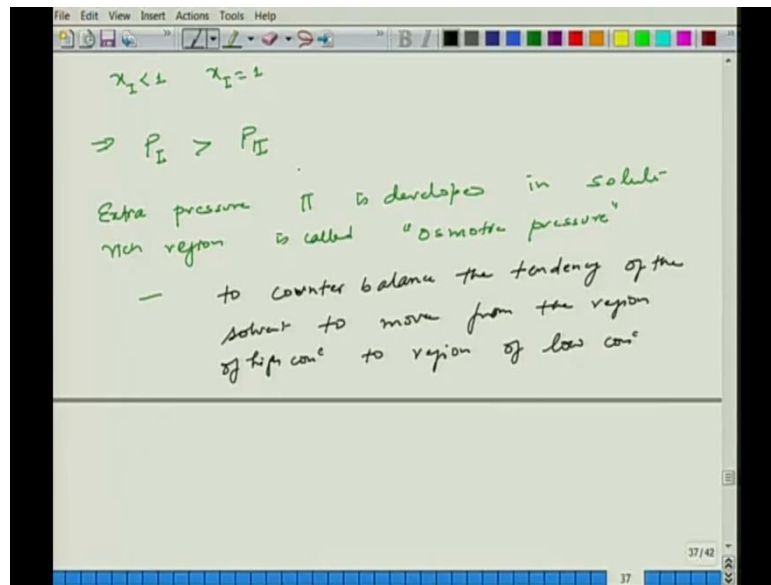 File Edit View Insert Actions Tools Help
B I
x_I < 1 x_I = 1
⇒ P_I > P_II
Extra pressure π is developed in solute
rich region is called "osmotic pressure"
— to counter balance the tendency of the
solvent to move from the region
of high conc to region of low conc
37/42
37